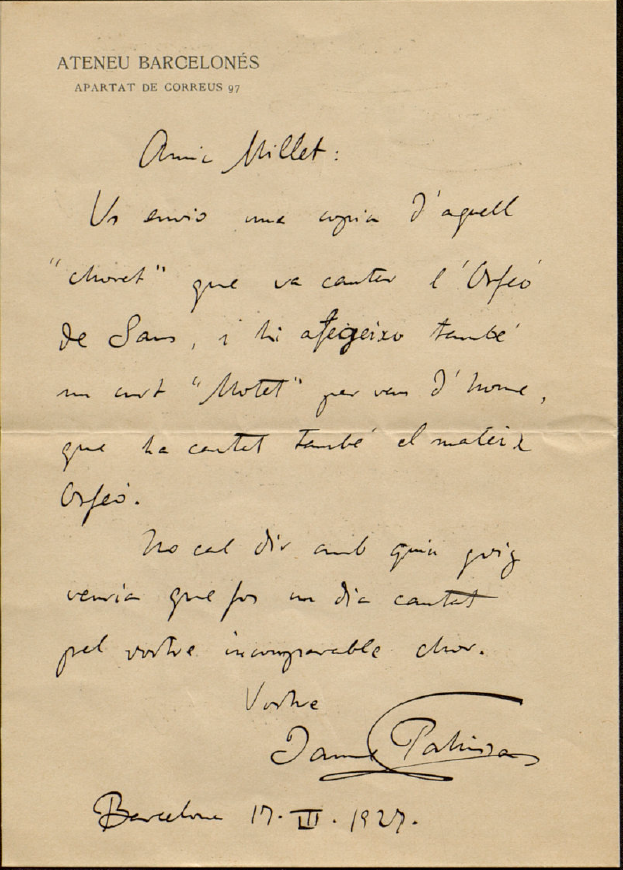 ATENEU BARCELONÉS
APARTAT DE CORREUS 97
Amic Millet:
Us envio una copia d'aquell
"choret" que va cantar l'Orfeó
de Sans, i hi afegeixo també
un curt "Motet" per veus d'home,
que ha cantat també el mateix
Orfeó.
No cal dir amb quin goig
veuria que fos un dia cantat
pel vostre incomparable chor.
Vostre
Jaume Pahissa
Barcelona 17·III·1927.